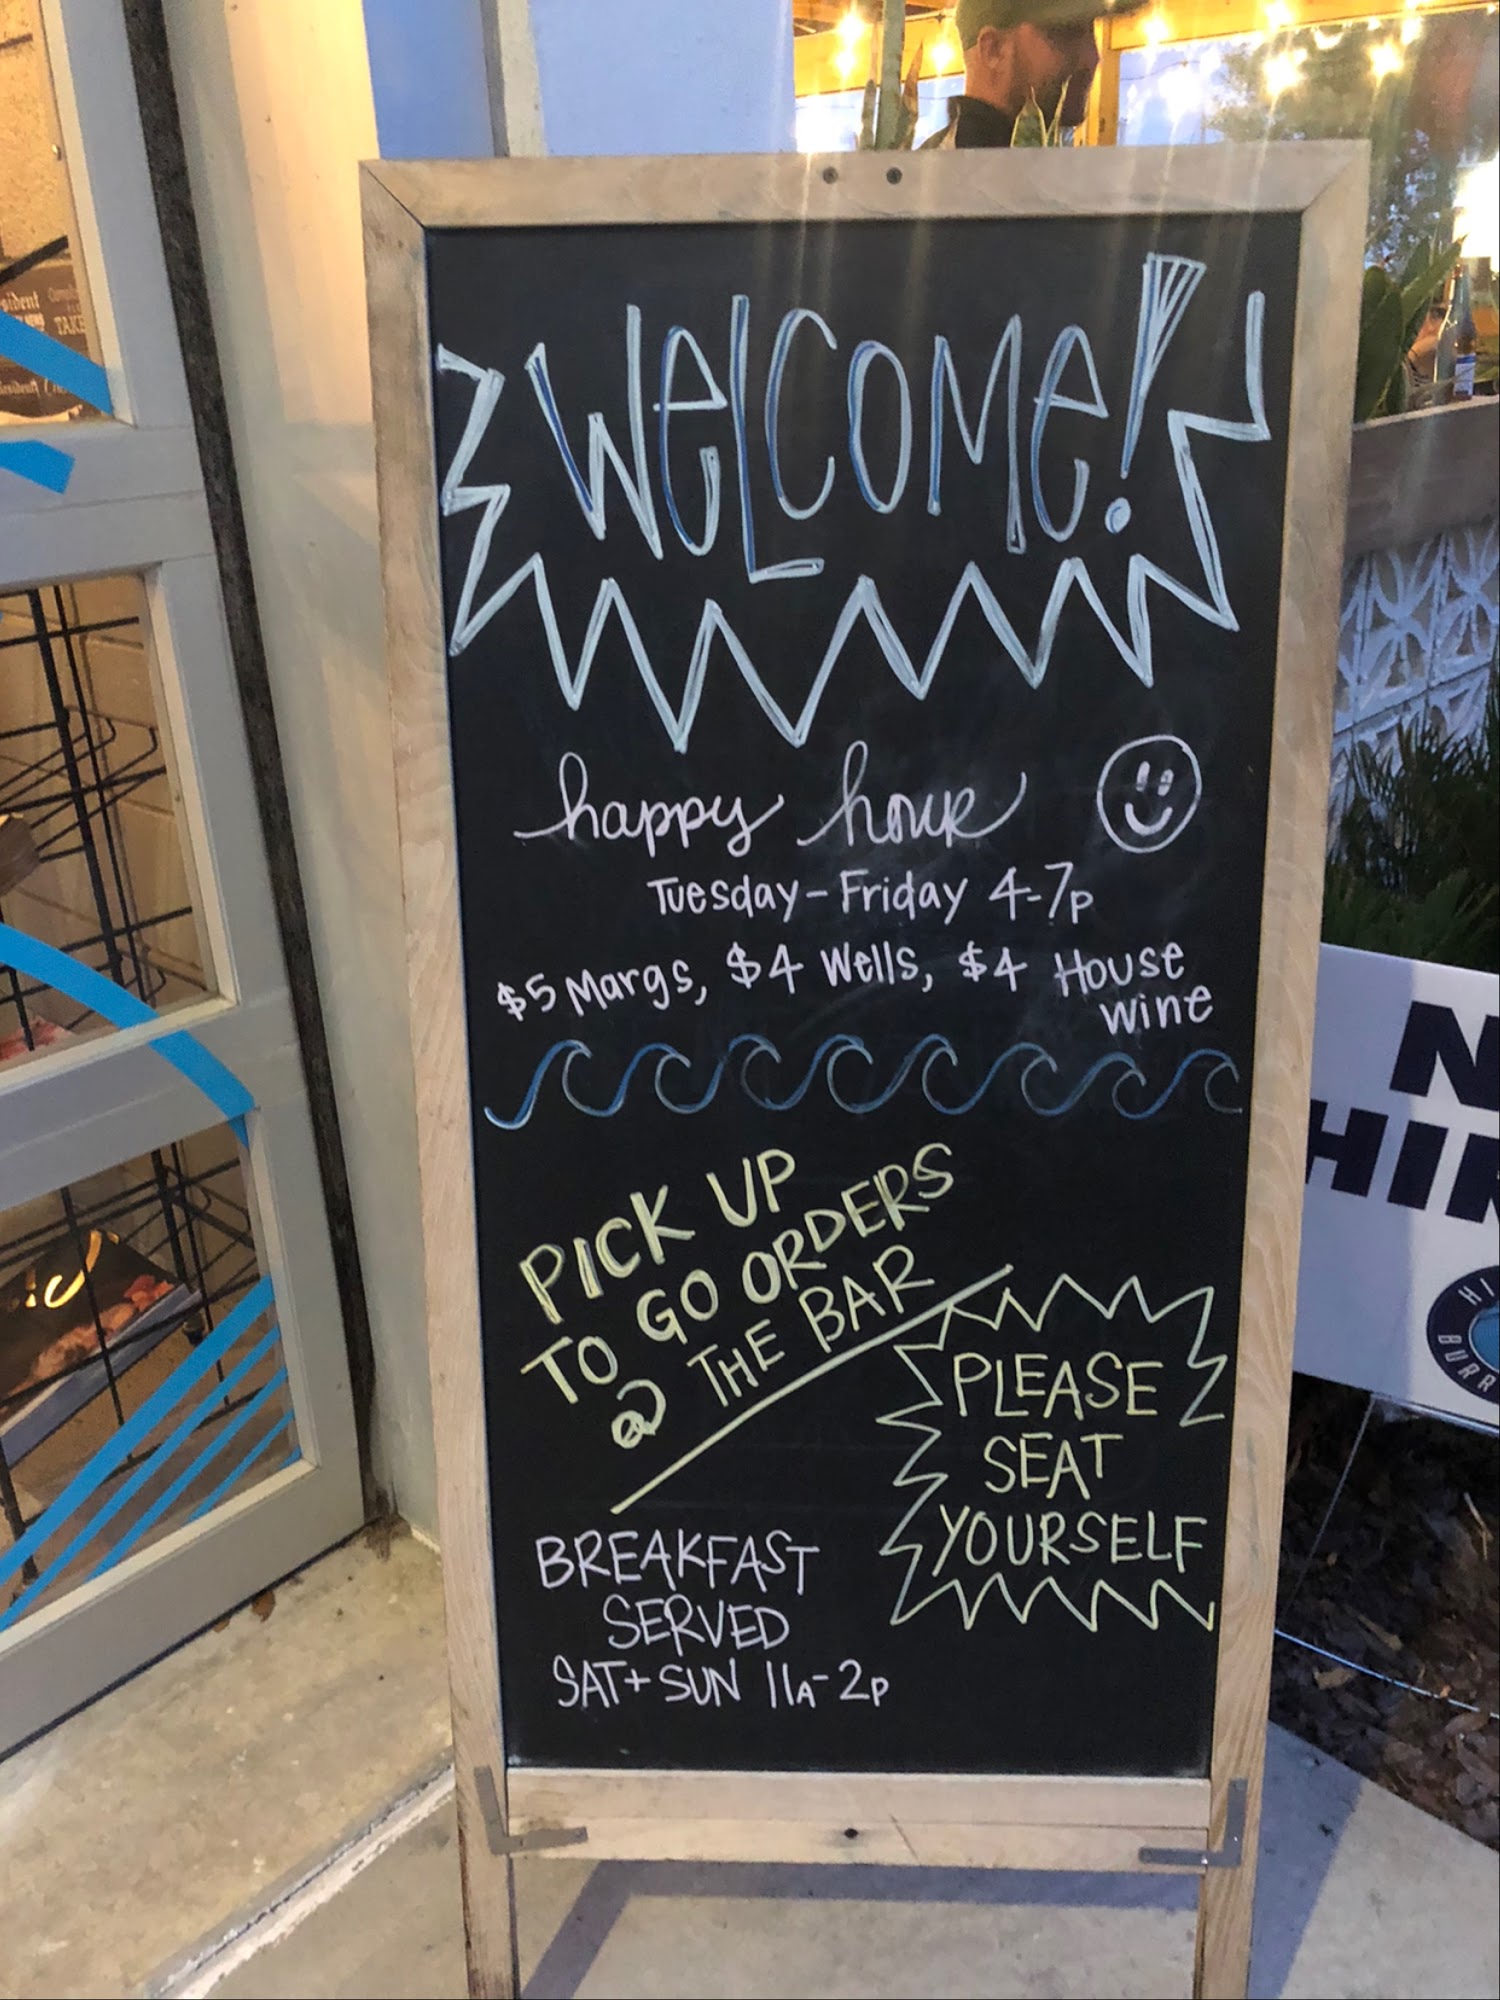 WeLCOMe!
happy hour
Tuesday-Friday 4-7p
$5 Margs, $4 Wells, $4 House
wine
PICK UP
TO GO ORDERS
@ THE BAR
PLEASE
SEAT
YOURSELF
BREAKFAST
SERVED
SAT+SUN 11A-2P
TAKE